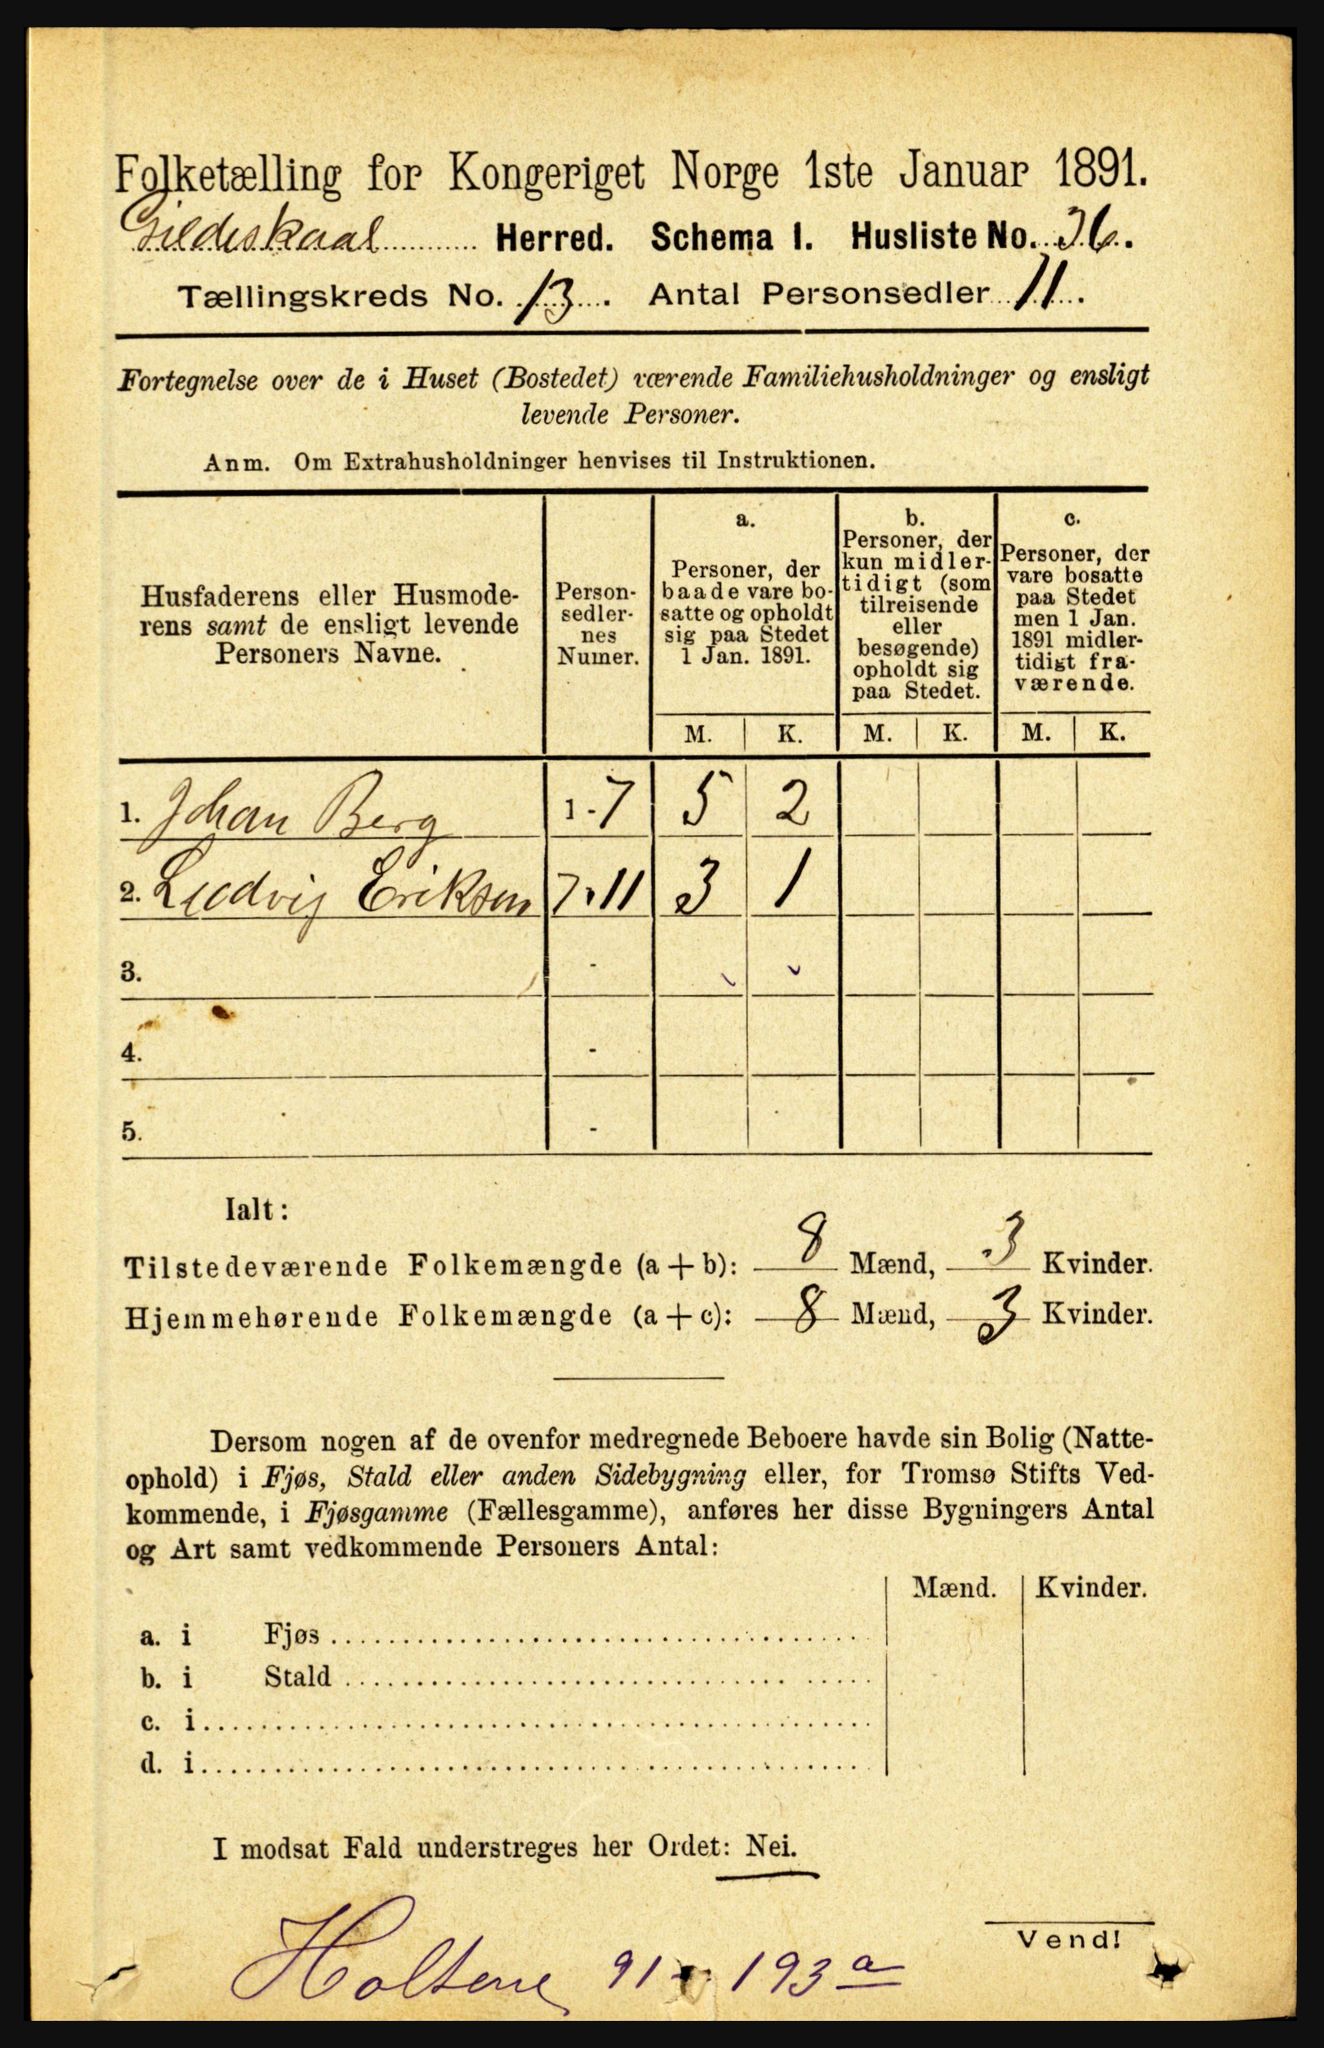 Folketælling for Kongeriget Norge 1ste Januar 1891.
Gildeskaal Herred. Schema 1. Husliste No. 36.
Tællingskreds No. 13. Antal Personsedler 11.
Fortegnelse over de i Huset (Bostedet) værende Familiehusholdninger og ensligt
levende Personer.
Anm. Om Extrahusholdninger henvises til Instruktionen.
Husfaderens eller Husmode-
rens samt de ensligt levende
Personers Navne.
Person-
sedler-
nes
Numer.
a.
Personer, der
baade vare bo-
satte og opholdt
sig paa Stedet
1 Jan. 1891.
b.
Personer, der
kun midler-
tidigt (som
tilreisende
eller
besøgende)
opholdt sig
paa Stedet.
c.
Personer, der
vare bosatte
paa Stedet
men 1 Jan.
1891 midler-
tidigt fra-
værende.
M. K. M. K. M. K.
1. Johan Berg 1-7 5 2
2. Ludvig Eriksen 7-11 3 1
3. -
4. -
5. -
Ialt:
Tilstedeværende Folkemængde (a + b): 8 Mænd, 3 Kvinder.
Hjemmehørende Folkemængde (a + c): 8 Mænd, 3 Kvinder.
Dersom nogen af de ovenfor medregnede Beboere havde sin Bolig (Natte-
ophold) i Fjøs, Stald eller anden Sidebygning eller, for Tromsø Stifts Ved-
kommende, i Fjøsgamme (Fællesgamme), anføres her disse Bygningers Antal
og Art samt vedkommende Personers Antal:
Mænd. Kvinder.
a. i Fjøs
b. i Stald
c. i
d. i
I modsat Fald understreges her Ordet: Nei.
Vend!
Holtene 91 - 193 a